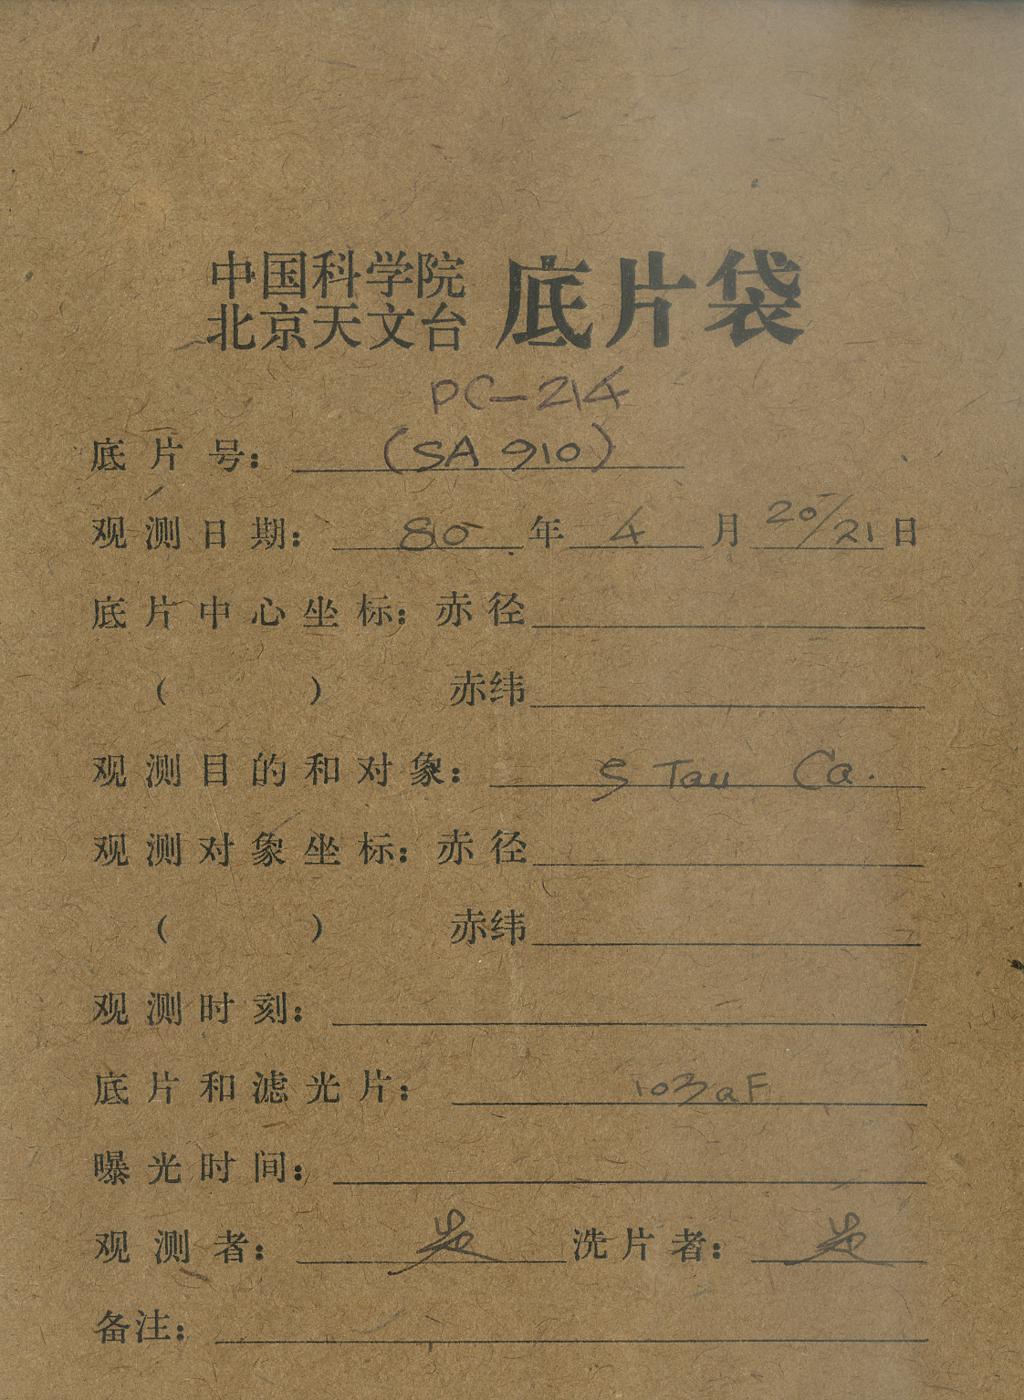 中国科学院
北京天文台 底片袋
PC-214
底片号: (SA 910)
观测日期: 80年 4月 20/21日
底片中心坐标: 赤径
( ) 赤纬
观测目的和对象: S Tau Ca.
观测对象坐标: 赤径
( ) 赤纬
观测时刻:
底片和滤光片: 103aF
曝光时间:
观测者: 洗片者:
备注: